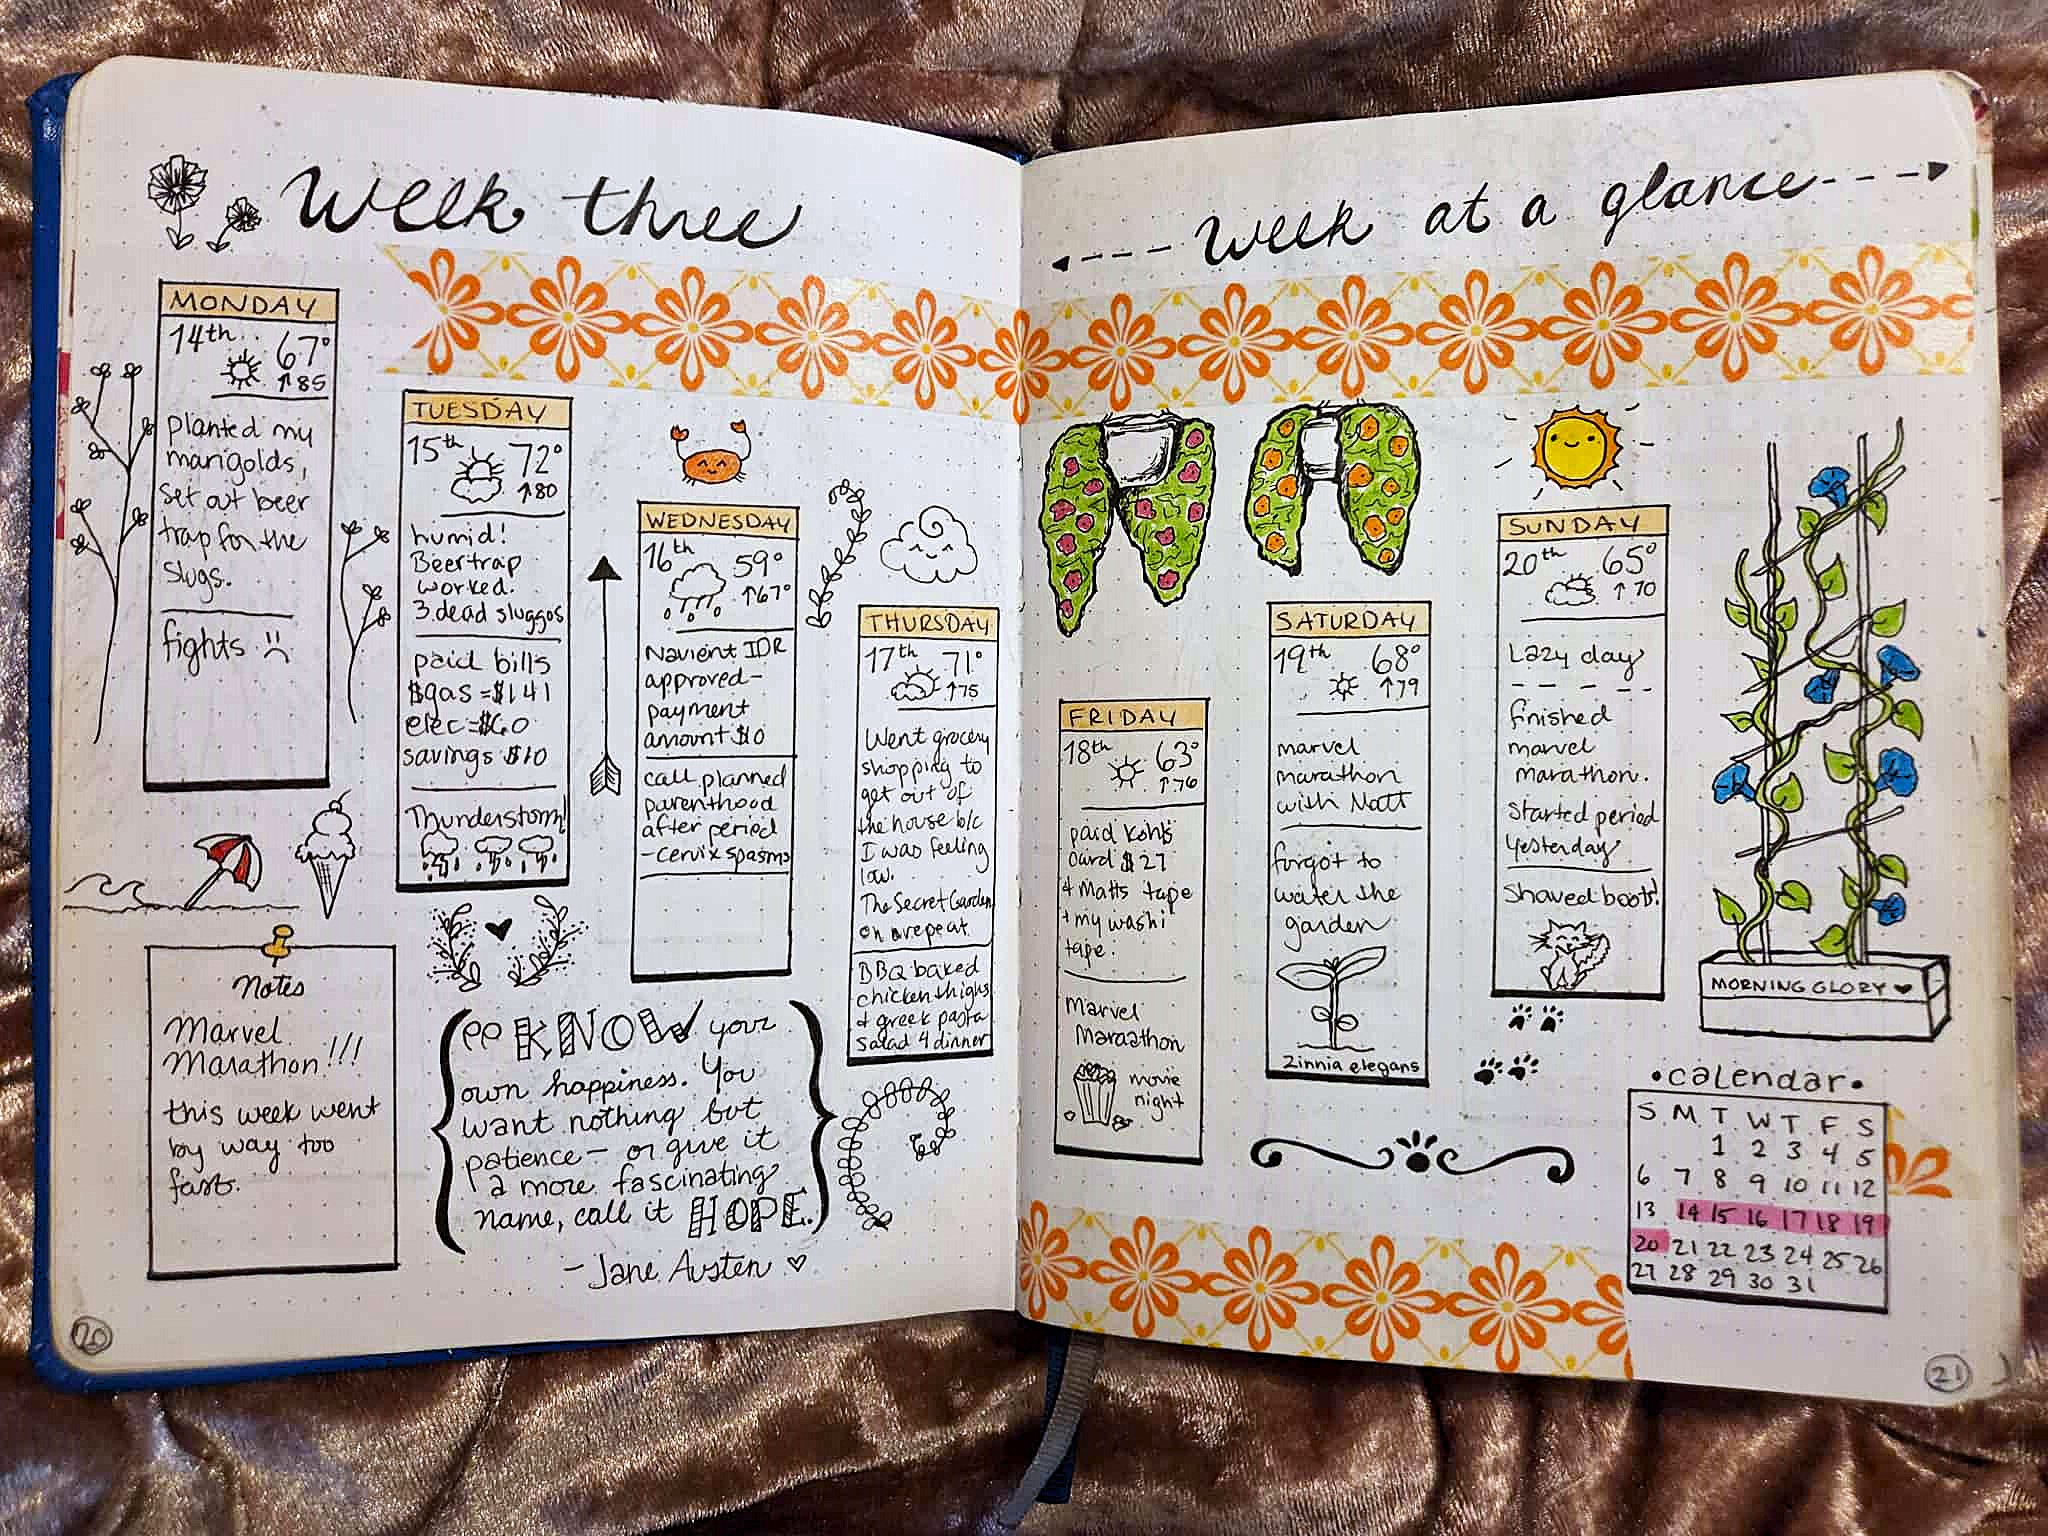 Week three
MONDAY
14th 67°
↑85
planted my
marigolds,
set out beer
trap for the
slugs.
fights :(
TUESDAY
15th 72°
↑80
humid!
Beer trap
worked.
3 dead sluggos
paid bills
$gas = $141
elec = $60
savings $10
Thunderstorm!
WEDNESDAY
16th 59°
↑67°
Navient IDR
approved-
payment
amount $0
call planned
parenthood
after period
-cervix spasms
THURSDAY
17th 71°
↑75
Went grocery
shopping to
get out of
the house b/c
I was feeling
low.
The Secret Garden
on repeat.
BBQ baked
chicken thighs
& greek pasta
salad 4 dinner
Notes
Marvel
Marathon!!!
this week went
by way too
fast.
"KNOW your
own happiness. You
want nothing but
patience- or give it
a more fascinating
name, call it HOPE.
- Jane Austen ♡
20
Week at a glance
FRIDAY
18th 63°
↑76
paid Kohls
card $27
+ Matts tape
+ my washi
tape.
Marvel
Maraathon
movie
night
SATURDAY
19th 68°
↑79
marvel
marathon
with Matt
forgot to
water the
garden
Zinnia elegans
SUNDAY
20th 65°
↑70
Lazy day
finished
marvel
marathon.
Started period
yesterday
Shaved boots!
MORNING GLORY ♥
•calendar•
S M T W T F S
1 2 3 4 5
6 7 8 9 10 11 12
13 14 15 16 17 18 19
20 21 22 23 24 25 26
27 28 29 30 31
21